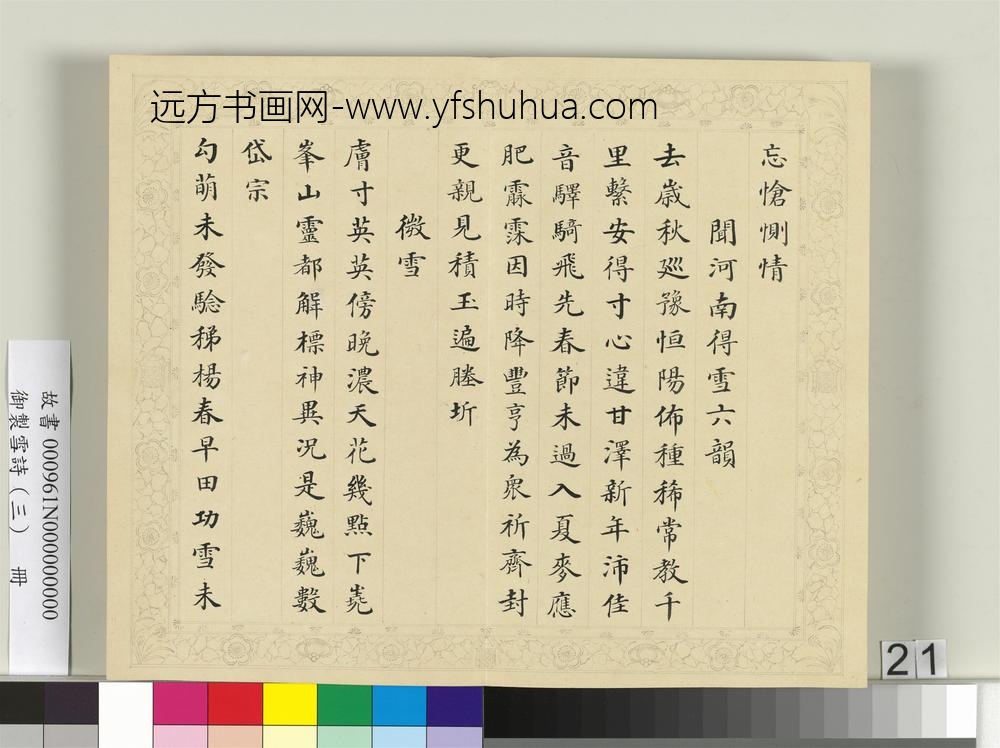 远方书画网-www.yfshuhua.com
忘愴惻情
聞河南得雪六韻
去歲秋巡豫恒陽佈種稀常教千
里繫安得寸心違甘澤新年沛佳
音驛騎飛先春節未過入夏麥應
肥霢霂因時降豐亨為衆祈齊封
更親見積玉遍塍圻
微雪
膚寸英英傍晚濃天花幾點下嶤
峯山靈都解標神異况是巍巍數
岱宗
勾萌未發騐稊楊春早田功雪未
故書 000961N000000000
御製雪詩（三） 冊
21